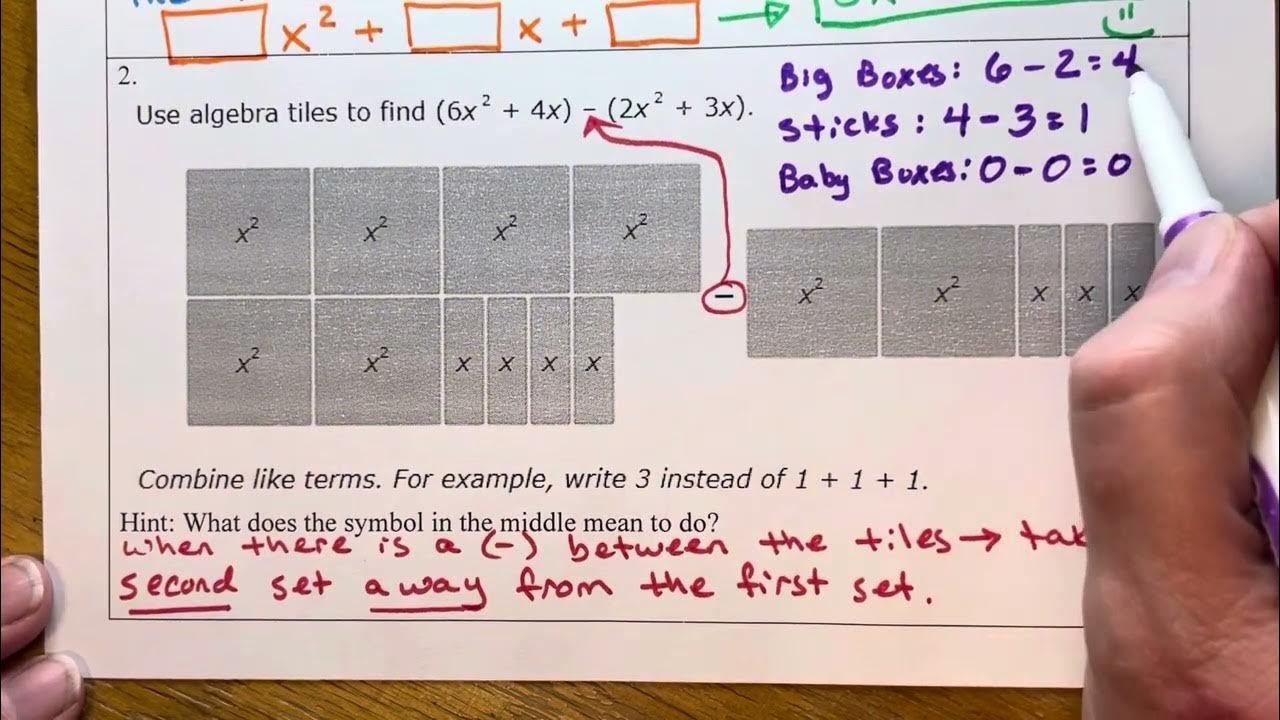 x² + x +
2.
Use algebra tiles to find (6x² + 4x) − (2x² + 3x).
Big Boxes: 6 − 2 = 4
Sticks : 4 − 3 = 1
Baby Boxes: 0 − 0 = 0
x² x² x² x²
x² x² x x x x
−
x² x² x x x
Combine like terms. For example, write 3 instead of 1 + 1 + 1.
Hint: What does the symbol in the middle mean to do?
When there is a (−) between the tiles →
second set away from the first set.